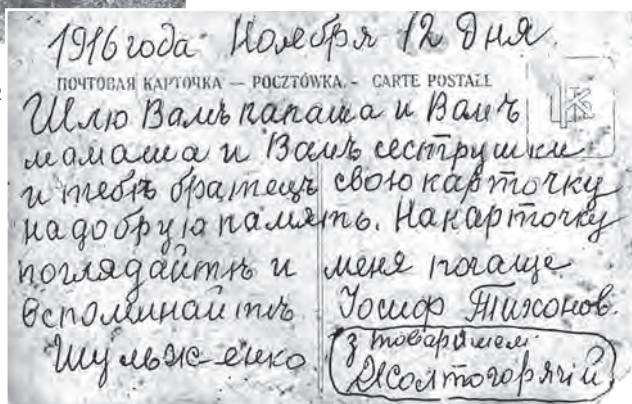 1916 года Ноября 12 дня
ПОЧТОВАЯ КАРТОЧКА — POCZTÓWKA. - CARTE POSTALE
Шлю Вамъ папаша и Вамъ
мамаша и Вамъ сеструшки
и тебѣ братецъ свою карточку
на добрую память. На карточку
поглядайтѣ и меня почаще
вспоминайтѣ Иосиф Тихонов.
Шульженко
з товаришем
Жолтогорячій